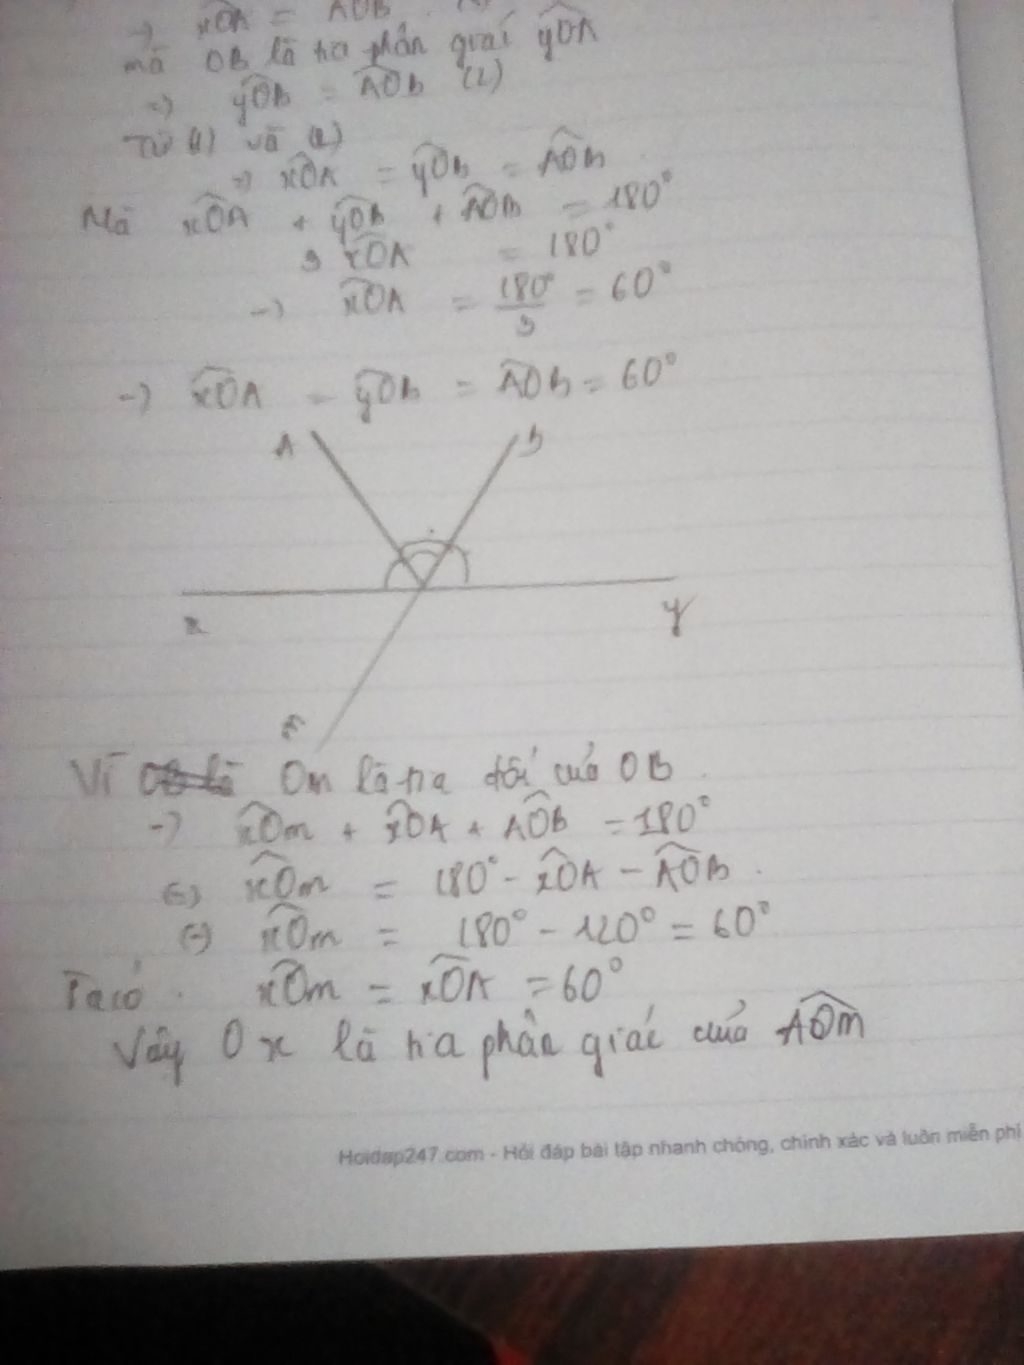 =) xOA = AOB
mà OB là tia phân giác yOA
=) yOB = AOB (2)
Từ (1) và (2)
=) xOA = yOB = AOB
Mà xOA + yOB + AOB = 180°
3 xOA = 180°
=) xOA = 180°/3 = 60°
=) xOA = yOB = AOB = 60°
A B
x y
Vì Om là tia đối của OB
=) xOm + xOA + AOB = 180°
(=) xOm = 180° - xOA - AOB
(=) xOm = 180° - 120° = 60°
Ta có xOm = xOA = 60°
Vậy Ox là tia phân giác của AOm
Hoidap247.com - Hỏi đáp bài tập nhanh chóng, chính xác và luôn miễn phí